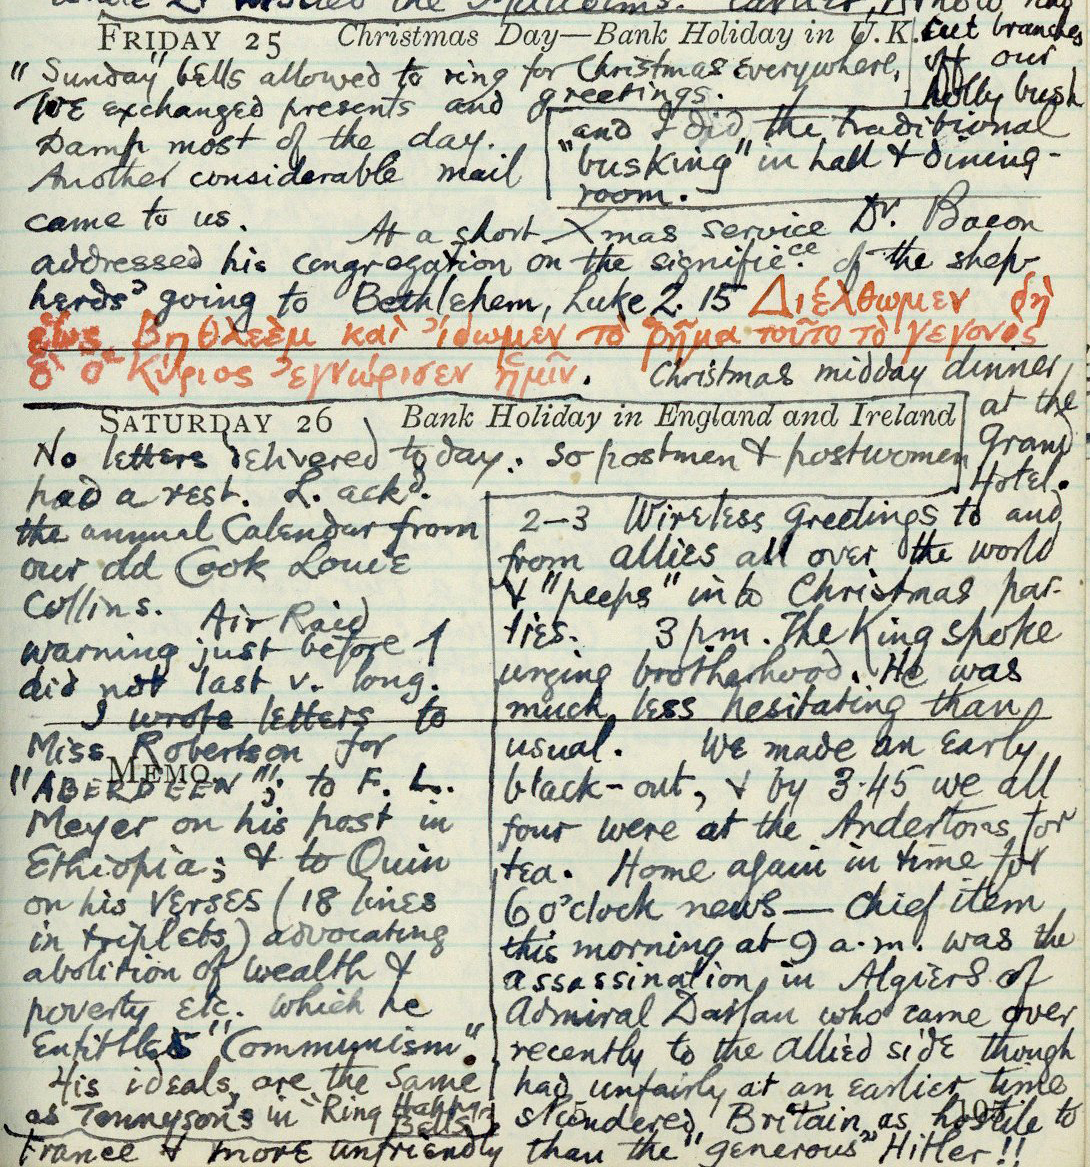 FRIDAY 25 Christmas Day—Bank Holiday in U.K.
cut branches
off our
holly bush
"Sunday" bells allowed to ring for Christmas everywhere,
We exchanged presents and greetings.
Damp most of the day.
Another considerable mail
came to us.
and I did the traditional
"busking" in hall & dining-
room.
At a short Xmas service Dr. Bacon
addressed his congregation on the significce. of the shep-
herds' going to Bethlehem, Luke 2. 15 Διέλθωμεν δὴ
ἕως Βηθλεὲμ καὶ ἴδωμεν τὸ ῥῆμα τοῦτο τὸ γεγονὸς
ὃ ὁ Κύριος ἐγνώρισεν ἡμῖν. Christmas midday dinner
at the
Grand
Hotel.
SATURDAY 26 Bank Holiday in England and Ireland
No letters delivered today. So postmen & postwomen
had a rest. L. ackd.
the annual Calendar from
our old Cook Louie
Collins.
Air Raid
warning just before 1
did not last v. long.
I wrote letters to
Miss Robertson for
MEMO.
"ABERDEEN"; to F. L.
Meyer on his post in
Ethiopia; & to Quin
on his verses (18 lines
in triplets) advocating
abolition of wealth &
poverty etc. which he
Entitles "Communism".
His ideals are the same
as Tennyson's in "Ring Happy
Bells"
2–3 Wireless Greetings to and
from allies all over the world
& "peeps" into Christmas par-
ties. 3 p.m. The King spoke
urging brotherhood. He was
much less hesitating than
usual. We made an early
black-out, & by 3.45 we all
four were at the Andertons for
tea. Home again in time for
6 o'clock news — Chief item
this morning at 9 a.m. was the
assassination in Algiers of
Admiral Darlan who came over
recently to the Allied side though
had unfairly at an earlier time
slandered Britain as hostile to
France & more unfriendly than the "generous" Hitler!!